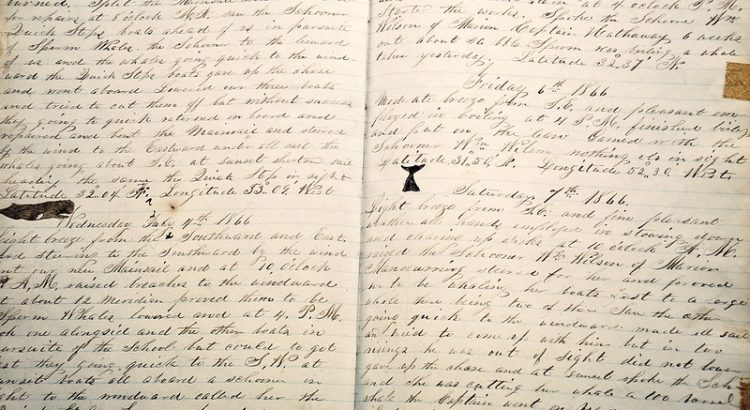 for repairs at 8 oclock A.M. saw the Schooner
Quick Steps boats ahead of us in pursuite
of Sperm Whales, the Schooner to the leeward
of us and the whales going quick to the wind-
ward the Quick Steps boats gave up the chase
and went aboard Lowered our three boats
and tried to cut them off but without success
they going to quick returned on board and
repaired and bent the Mainsail and steered
by the wind to the Eastward under all sail the
whales going about S.E. at sunset shortend sail
heading the same the Quick Step in sight
Latitude 32.04 N. Longitude 53.02 West
Wednesday July 4th 1866
light breeze from the Southward and East.
and steering to the Southward by the wind
bent our new Mainsail and at 10 oclock
A.M. raised breaches to the windward
at about 12 Meridian proved them to be
Sperm Whales lowered and at 4 P.M.
one alongsid and the other boats in
pursuite of the School but could to get
they going quick to the S.W. at
sunset boats all aboard a schooner in
sight to the windward called her the
at 4 oclock P.M.
the works. Spoke the Schooner Wm
Wilson of Marion Captain Hathaway 6 weeks
out about 50 bbls Sperm was boiling a whale
taken yesterday. Latitude 32.37 N.
Friday 6th 1866
Moderate breeze from S.E. and pleasant em-
ployed in boiling at 4 P.M. finished boiling
and put on the Gamed with the
Schooner Wm Wilson nothing els in sight
Latitude 31.56 N. Longitude 52.36 West
Saturday 7th 1866.
Light breeze from S.E. and fine pleasant
weather all hands employed in stowing down
and clearing up decks at 10 oclock A.M.
raised the Schooner Wm Wilson of Marion
Manouvering steered for her and proved
her to be whaling her boats fast to a large
whale there being two of them Saw the other
going quick to the windward made all sail
and tried to come up with him but in two
risings he was out of sight did not lower
gave up the chase and at sunset spoke the Sch
and she was cutting her whale a 100 barrel
whale the Captain went on